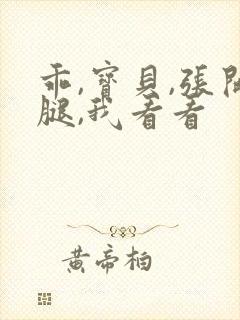 乖,寶貝,張開
腿,我看看
黄帝柏